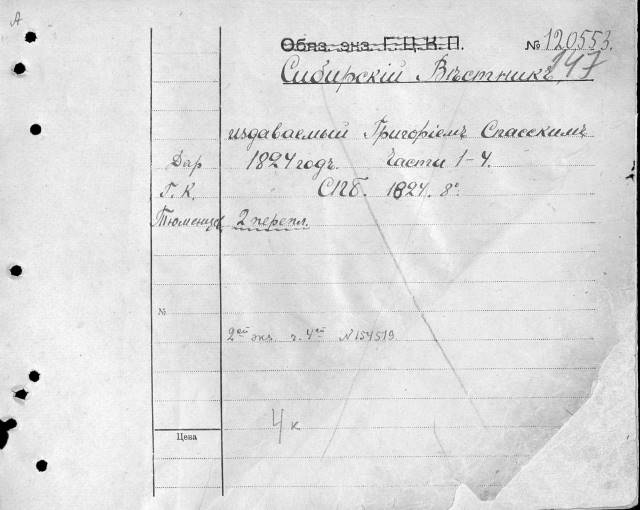 А
Обяз. экз. Г.Ц.К.П. № 120,553.
147
Сибирскій Вѣстникъ,
издаваемый Григоріемъ Спасскимъ
Дар 1824 годъ. Части 1-4.
Г. К. СПб. 1824. 8°.
Тюменцев 2 перепл.
№
2ой экз. ч. 4ой N 154519
4 к
Цена